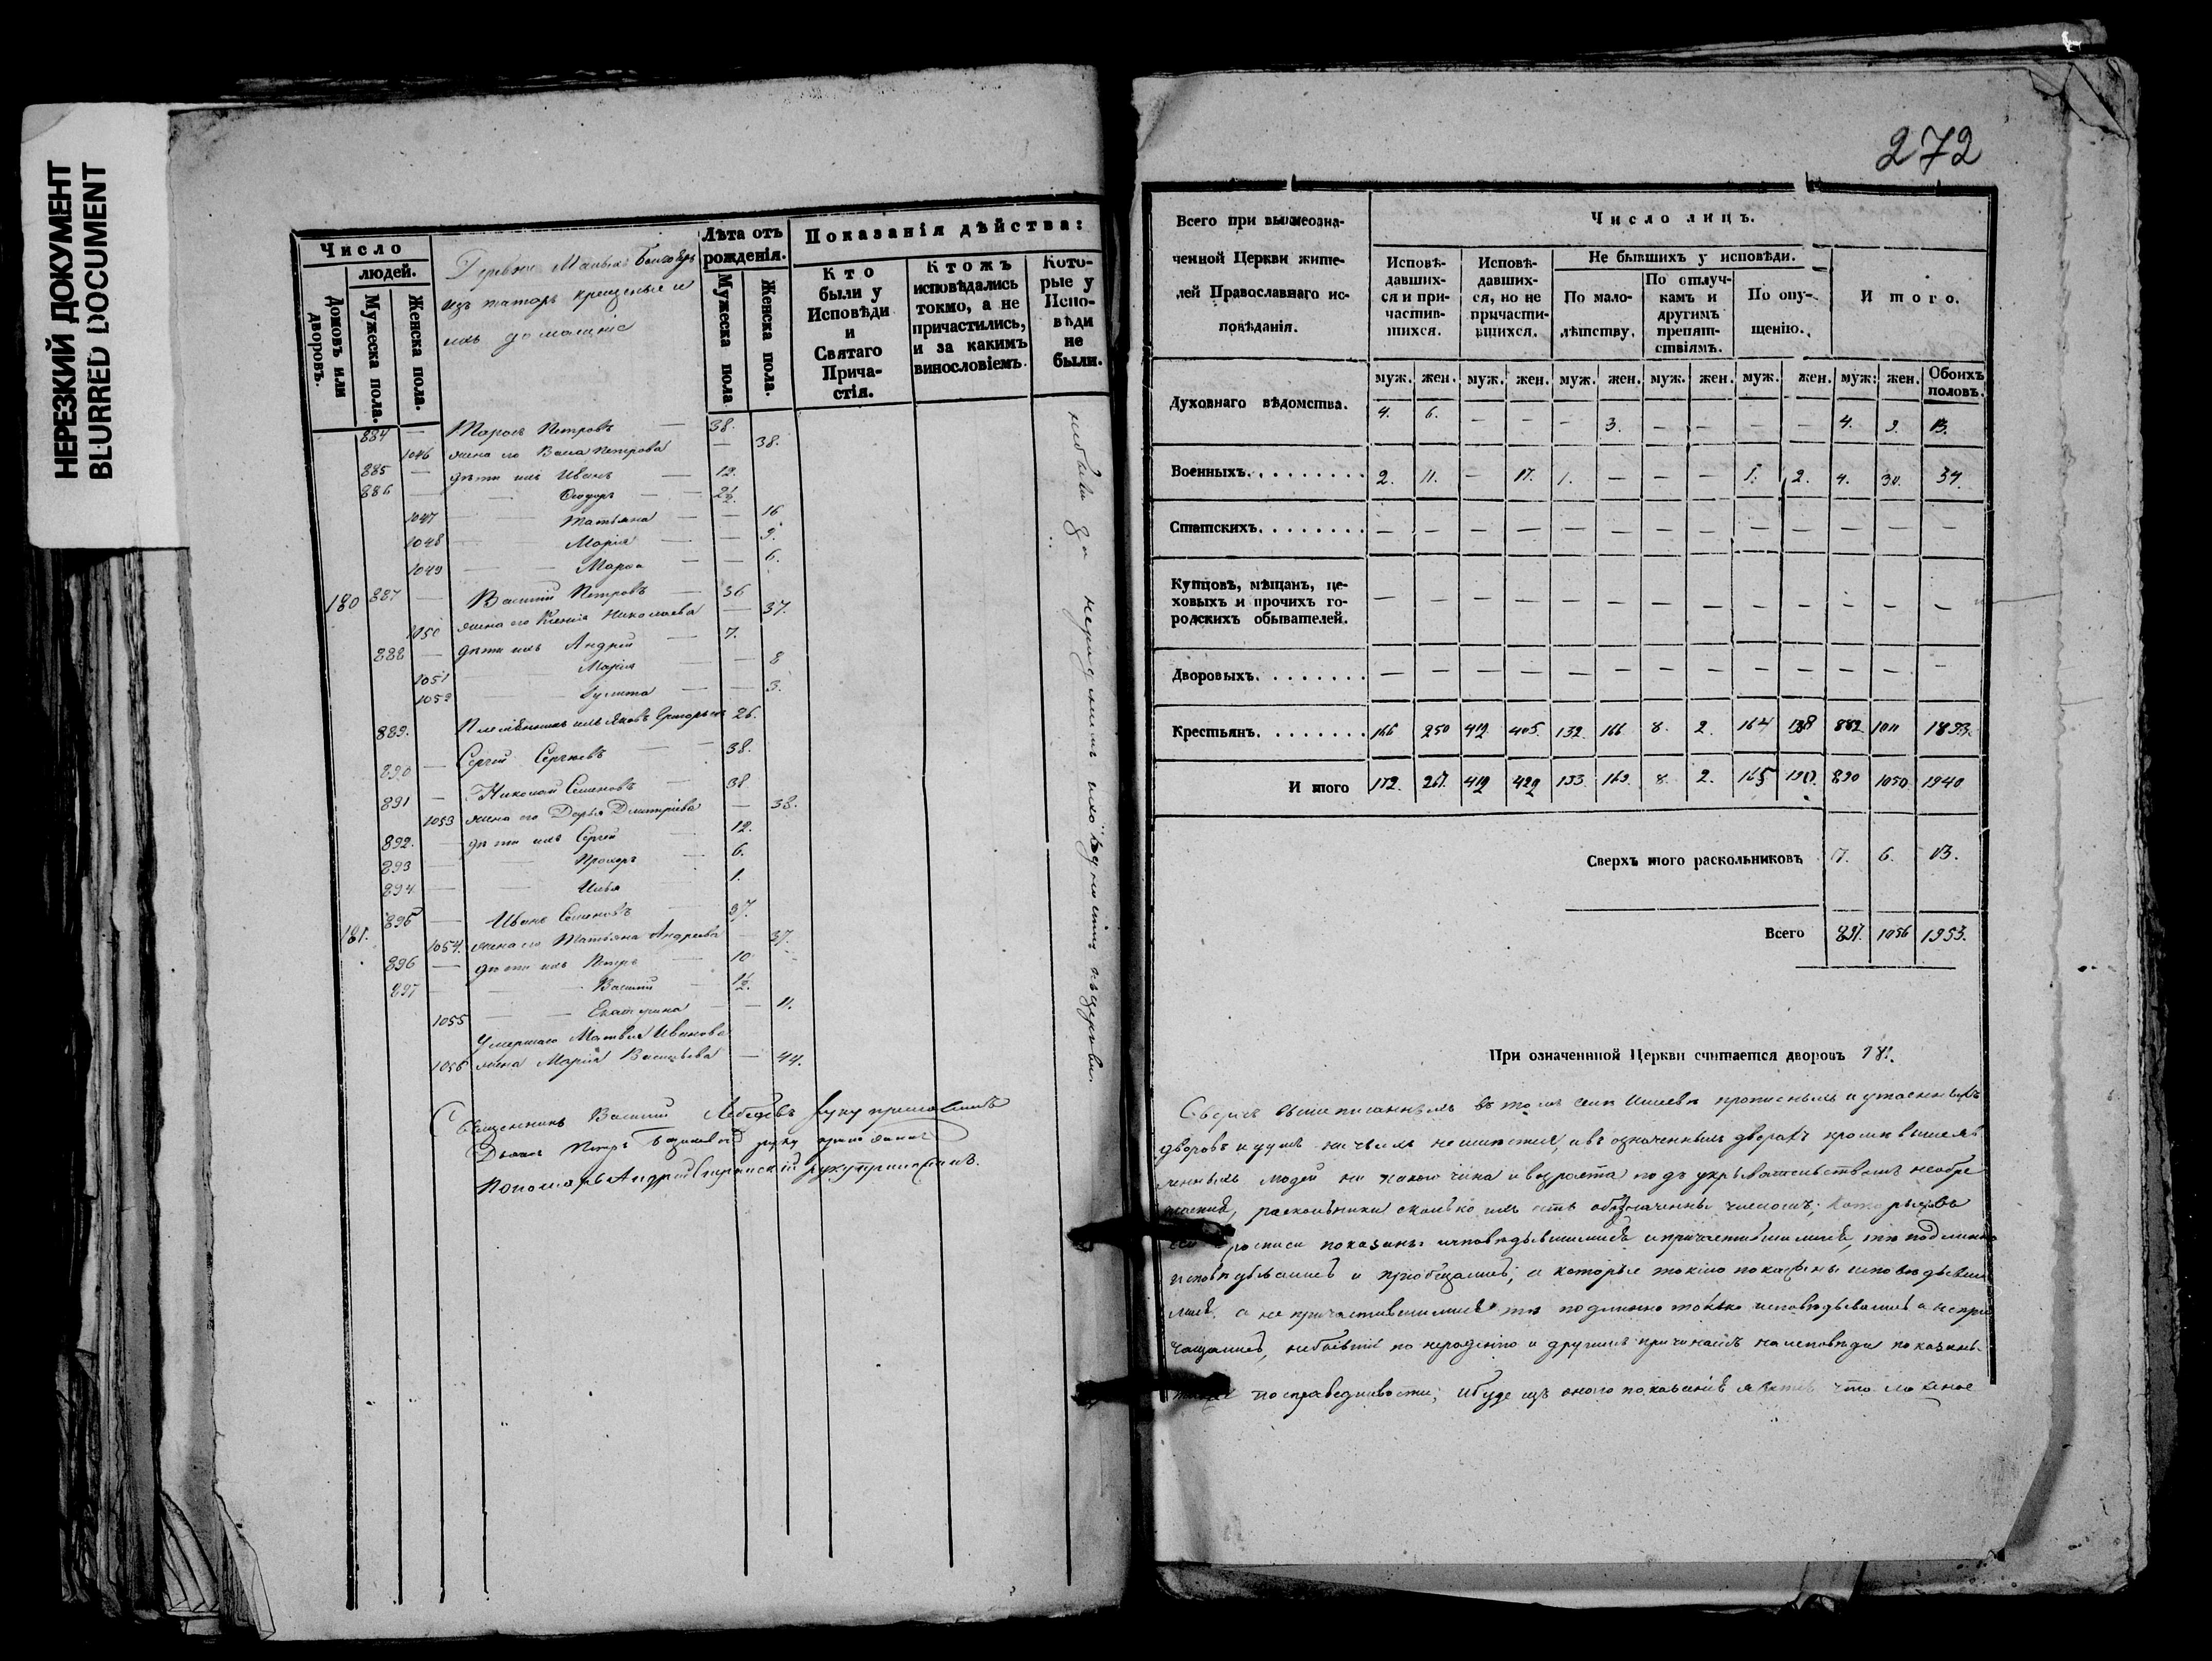 НЕРЕЗКИЙ ДОКУМЕНТ
BLURRED DOCUMENT
Число
людей.
Домовъ или дворовъ.
Мужеска пола.
Женска пола.
Деревни Малыхъ
изъ татаръ крещеные и
ихъ домашніе
Лѣта отъ рожденія.
Мужеска пола
Женска пола.
Показанія дѣйства:
Кто были у Исповѣди и Святаго Причастія.
Ктожъ исповѣдались токмо, а не причастились, и за какимъ винословіемъ.
Которые у Исповѣди не были.
884 — Петровъ — 38.
1046 жена его Петрова — 38.
885 — дѣти ихъ Иванъ — 12.
886 — Ѳеодоръ — — 2½.
1047 — — Татьяна — — 16
1048 — — Марія — — 9.
1049 — — — — 6.
180 887 — Василій Петровъ — 36
1050 жена его Ксенія Николаева — 37.
888 — дѣти ихъ Андрей — 7.
1051 Марія — — 8
1052 — — 3.
889. Племянникъ ихъ Яковъ Григорьевъ 26.
890 — Сергей Сергѣевъ — — 38.
891 — Николай Семеновъ — 38
1053 жена его Дарья Дмитріева — 38.
892. — дѣти ихъ Сергей 12.
893 — — Прохоръ — 6.
894 — — Илья 1.
181. 895 — Иванъ Семеновъ 37.
1054. жена его Татьяна Андреева 37.
896 — дѣти ихъ Петръ — 10
897 — — Василій — 1½.
1055 — — Екатерина — — 11.
Умершаго Матвея Иванова
1056 жена Марія Васильева — 44.
небыли за нерадѣніемъ
Священникъ Василій Лебедевъ руку приложилъ
Діаконъ Петръ руку приложилъ
Пономарь Андрей руку приложилъ.
272
Всего при вышеозначенной Церкви жителей Православнаго исповѣданія.
Число лицъ.
Исповѣдавшихся и причастившихся.
Исповѣдавшихся, но не причастившихся.
Не бывшихъ у исповѣди.
По малолѣтству.
По отлучкамъ и другимъ препятствіямъ.
По опущенію.
Итого.
муж. жен. муж. жен. муж. жен. муж. жен. муж. жен. муж: жен. Обоихъ половъ.
Духовнаго вѣдомства. 4. 6. — — — 3. — — — — 4. 9. 13.
Военныхъ. 2. 11. — 17. 1. — — — 1. 2. 4. 30. 34.
Статскихъ. — — — — — — — — — — — — —
Купцовъ, мѣщанъ, цеховыхъ и прочихъ городскихъ обывателей. — — — — — — — — — — — — —
Дворовыхъ. — — — — — — — — — — — — —
Крестьянъ. 166 250 412 405 132 166 8. 2. 164 188 882 1011 1893.
И того 172. 267. 412 422 133. 169. 8. 2. 165 190. 890 1050 1940
Сверхъ того раскольниковъ 7. 6. 13.
Всего 897. 1056 1953.
При означенной Церкви считается дворовъ 181.
Сверхъ вышеписанныхъ въ томъ селѣ прописныхъ и утаенныхъ
дворовъ и душъ ни чьихъ не имѣется, а въ означенныхъ дворахъ кромѣ вышеявленныхъ
людей ни какого чина и возраста подъ укрывательствомъ
раскольники сколько ихъ есть обозначены числомъ; которые въ
сей росписи показаны исповѣдывшимися и причастившимися, тѣ подлинно
исповѣдывались и пріобщались; а которые токмо показаны исповѣдывшимися
а не причастившимися тѣ подлинно токмо исповѣдывались а не причащались,
небывшіе по нерадѣнію и другимъ причинамъ на исповѣди показаны
по справедливости; ибуде изъ оного показанія явится что ложное